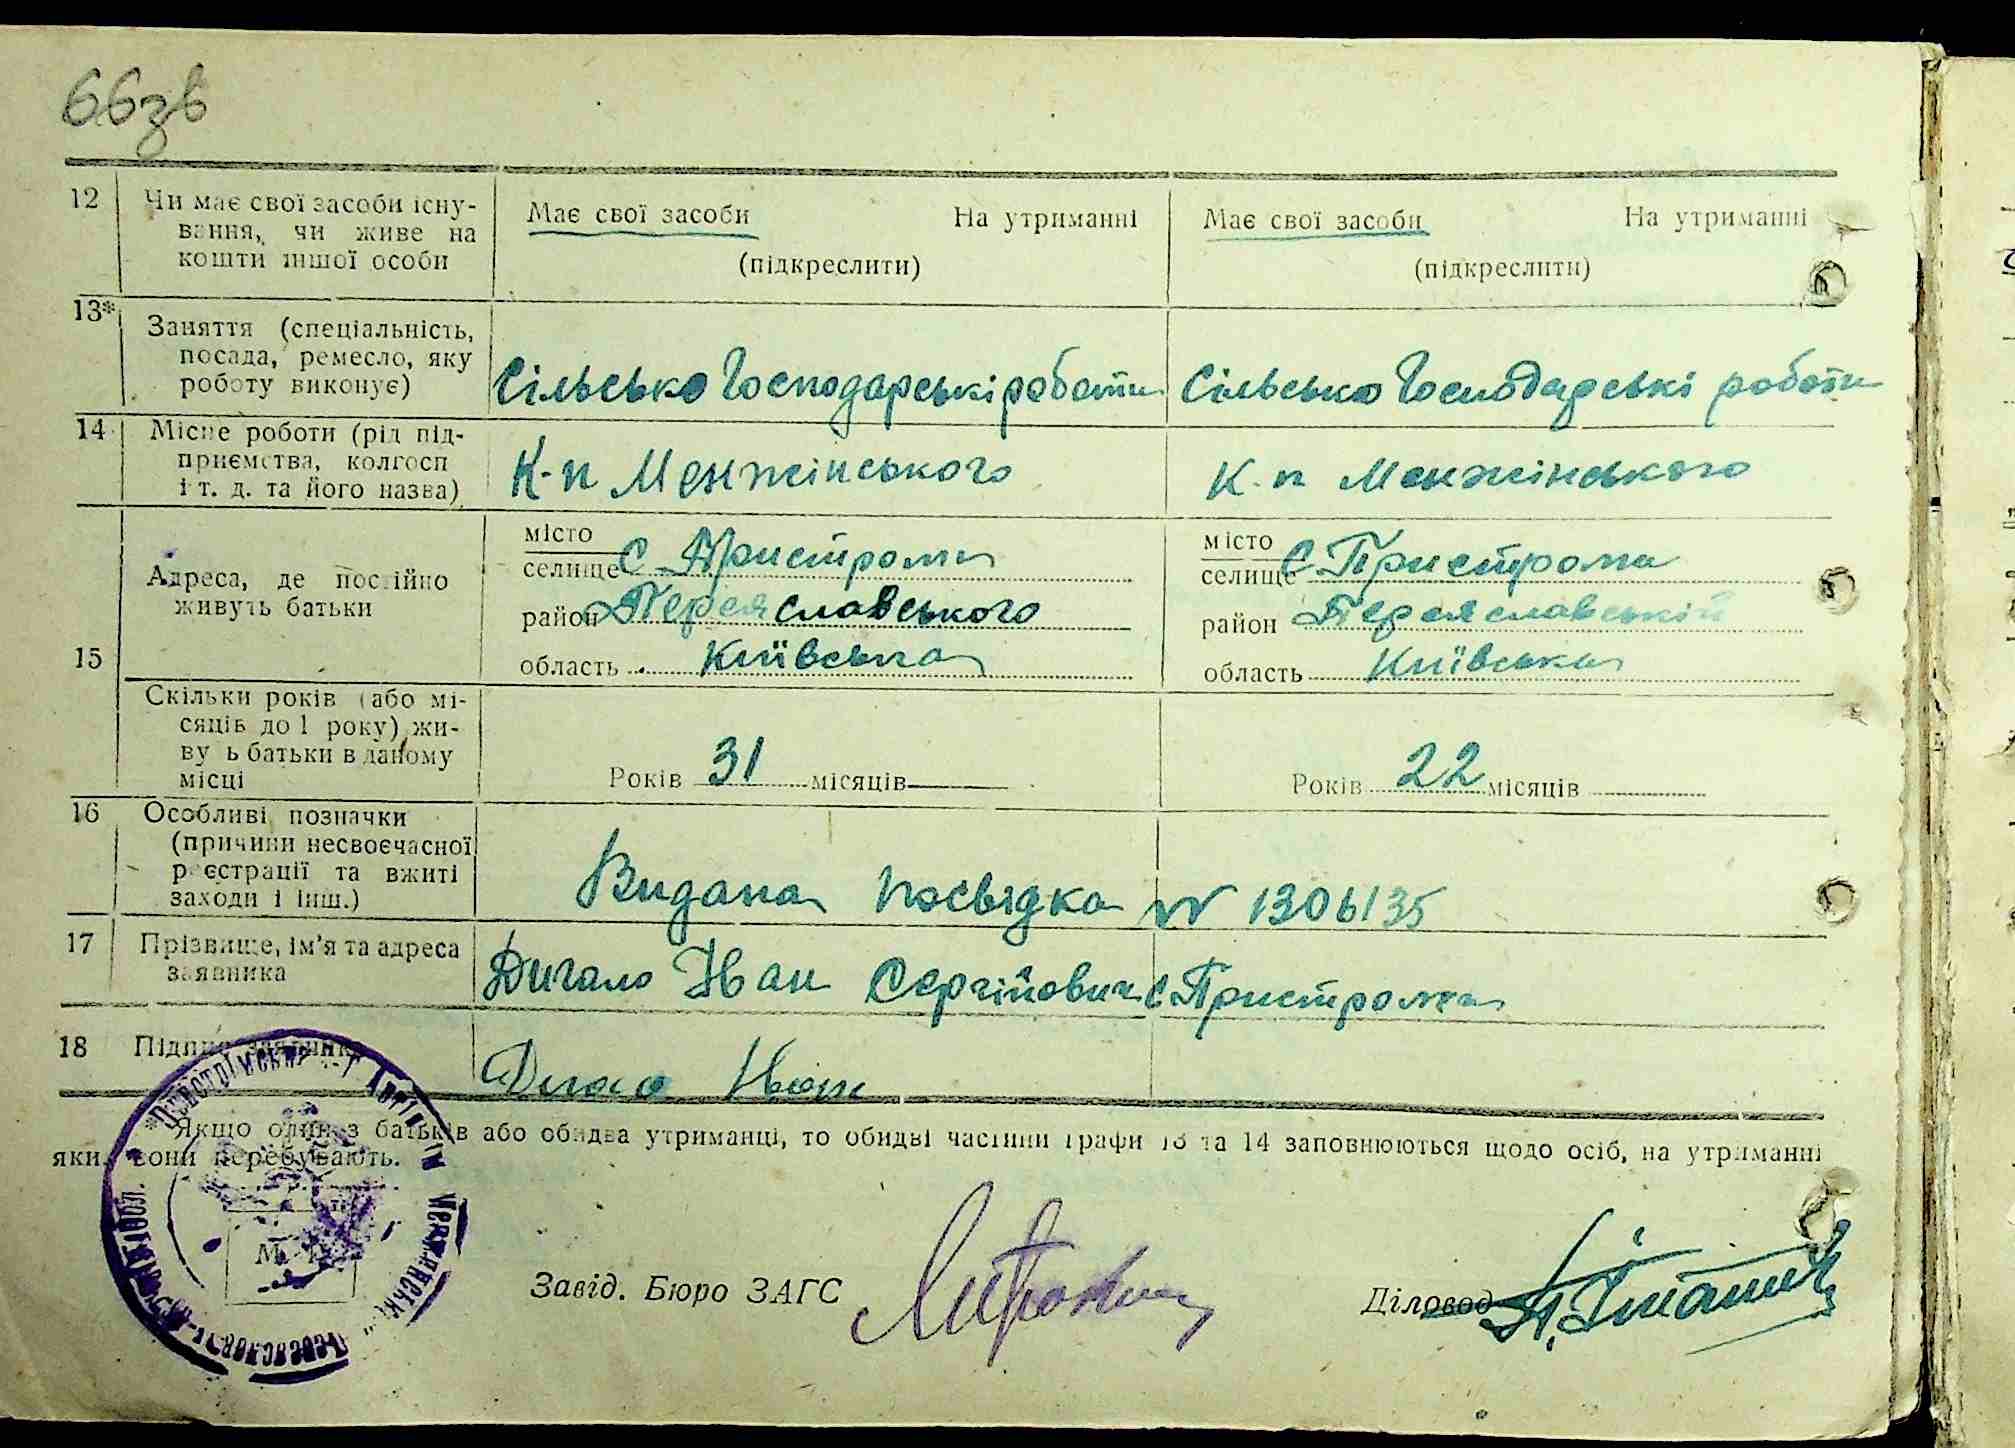 66зв
12 Чи має свої засоби існу-
вання, чи живе на
кошти іншої особи
Має свої засоби На утриманні
(підкреслити)
Має свої засоби На утриманні
(підкреслити)
13* Заняття (спеціальність,
посада, ремесло, яку
роботу виконує)
Сільсько Господарські роботи
Сільсько Господарські роботи
14 Місце роботи (рід під-
приємства, колгосп
і т. д. та його назва)
К-п Менжінського
К-п Менжінського
15 Адреса, де постійно
живуть батьки
місто
селище С Пристроми
район Переяславського
область Київська
місто
селище С Пристрома
район Переяславській
область Київська
Скільки років (або мі-
сяців до 1 року) жи-
вуть батьки в даному
місці
Років 31 місяців
Років 22 місяців
16 Особливі позначки
(причини несвоєчасної
реєстрації та вжиті
заходи і інш.)
Видана посвідка № 1306135
17 Прізвище, ім'я та адреса
заявника
Дигало Іван Сергійович с Пристрома
18 Підпис заявника
Іван
*Якщо один з батьків або обидва утриманці, то обидві частини графи 13 та 14 заповнюються щодо осіб, на утриманні
яких вони перебувають.
М. П.
Завід. Бюро ЗАГС
Діловод